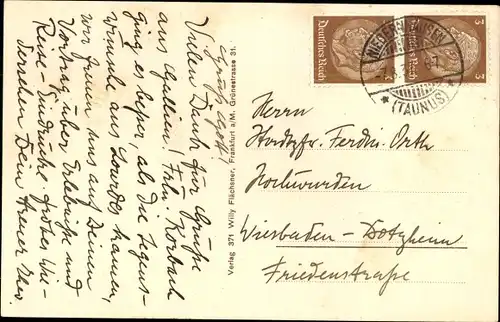 Grüss Gott!
Vielen Dank für Grüße
aus Gallien! Frln. Korbach
ging es besser, als die Segens-
wünsche aus Lourdes kamen,
wir freuen uns aus Deinen
Vortrag über Erlebnisse und
Reise-Eindrücke frohes Wie-
dersehen Dein treuer
Verlag 371 Willy Flächsner, Frankfurt a/M. Grünestrasse 31.
Deutsches Reich 3
Deutsches Reich 3
(TAUNUS)
Herrn
Ferdin. Orth
Hochwürden
Wiesbaden-Dotzheim
Friedenstraße